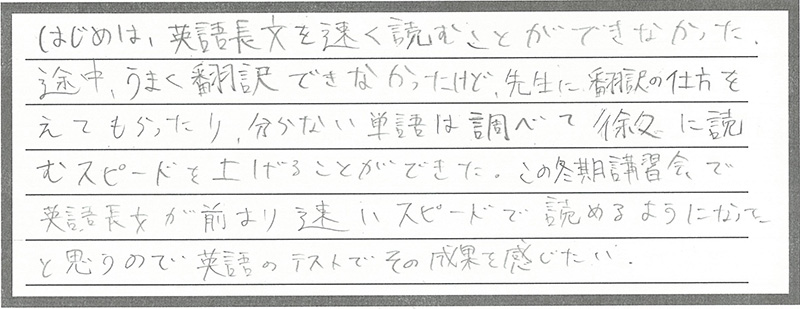 はじめは、英語長文を速く読むことができなかった.
途中、うまく翻訳できなかったけど、先生に翻訳の仕方を
えてもらったり、分らない単語は調べて徐々に読
むスピードを上げることができた。この冬期講習会で
英語長文が前より速いスピードで読めるようになった
と思うので英語のテストでその成果を感じたい.